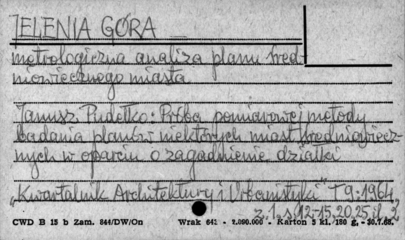 JELENIA GÓRA
metrologiczna analiza planu śred-
niowiecznego miasta
Janusz Pudełko: Próba pomiarowej metody
badania planów niektórych miast średniowiecz-
nych w oparciu o zagadnienie działki
"Kwartalnik Architektury i Urbanistyki" T 9:1964
z. 1. s. 12-15, 20, 25
CWD B 15 b Zam. 844/DW/On Wrak 641 - 2.000.000 - Karton 5 kl. 180 g. - 30.7.68.